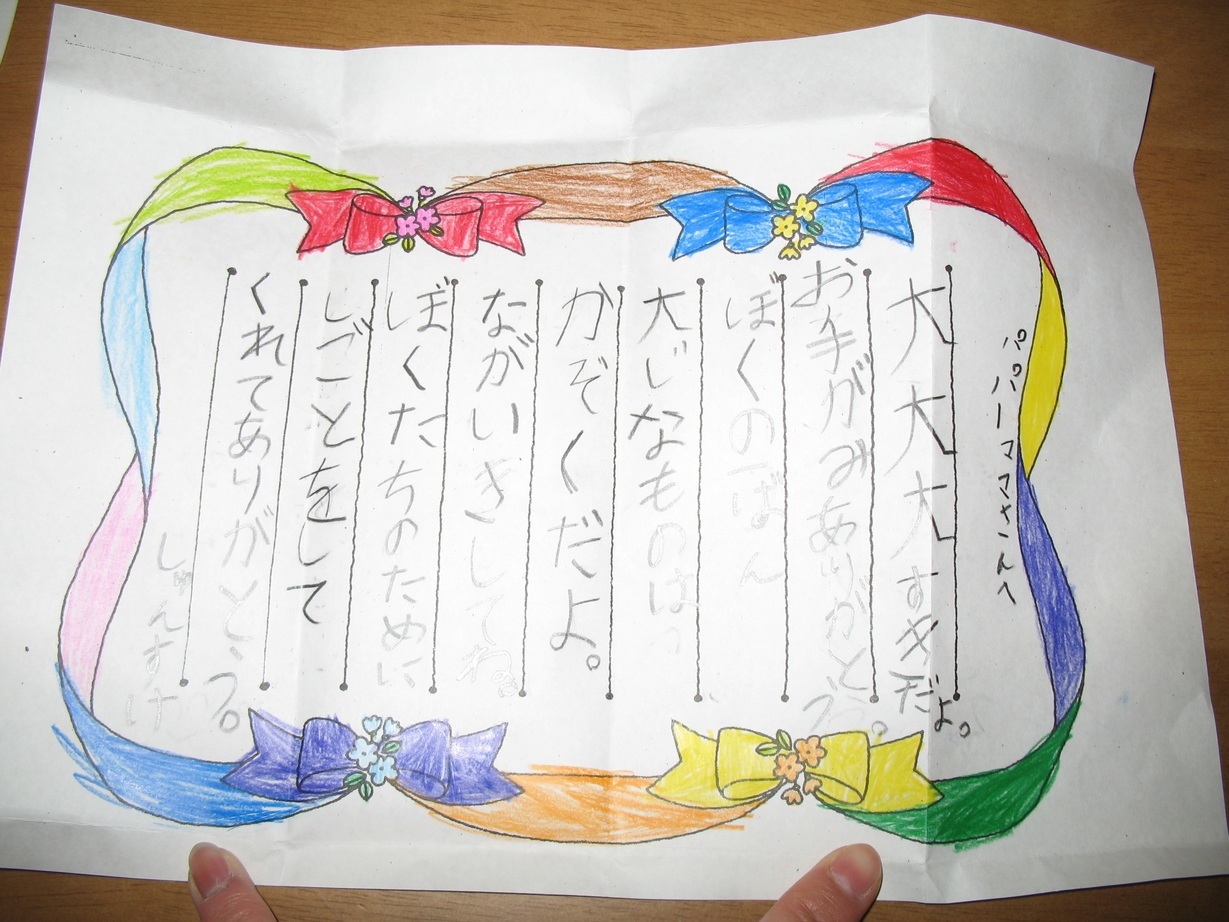 パパーママさんへ
大大大すきだよ。
お手がみありがとう。
ぼくの一ばん
大じなものは、
かぞくだよ。
ながいきしてね。
ぼくたちのために
しごとをして
くれてありがとう。
しゅんすけ